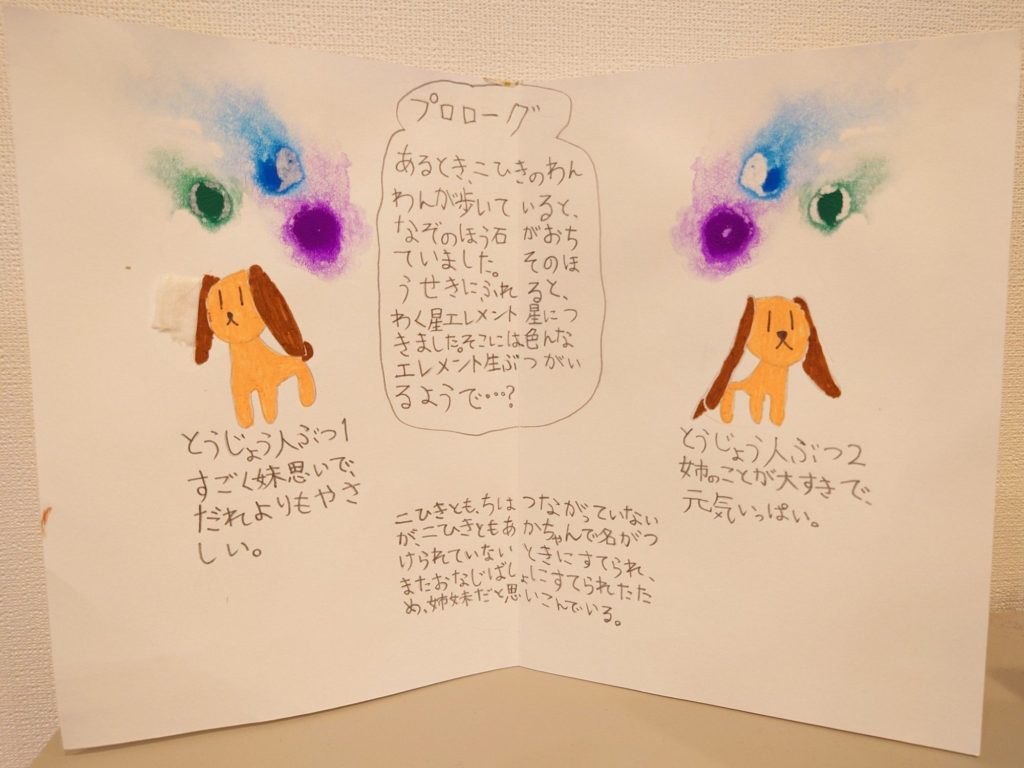 プロローグ
あるとき、二ひきのわん
わんが歩いて いると、
なぞのほう石 がおち
ていました。 そのほ
うせきにふれ ると、
わく星エレメント 星につ
きました。そこには色んな
エレメント生ぶつがい
るようで…?
とうじょう人ぶつ1
すごく妹思いで、
だれよりもやさ
しい。
とうじょう人ぶつ2
姉のことが大すきで、
元気いっぱい。
二ひきとも、ちは つながっていない
が二ひきともあ かちゃんで名がつ
けられていない ときにすてられ、
またおなじばしょ にすてられたた
め、姉妹だと思い こんでいる。